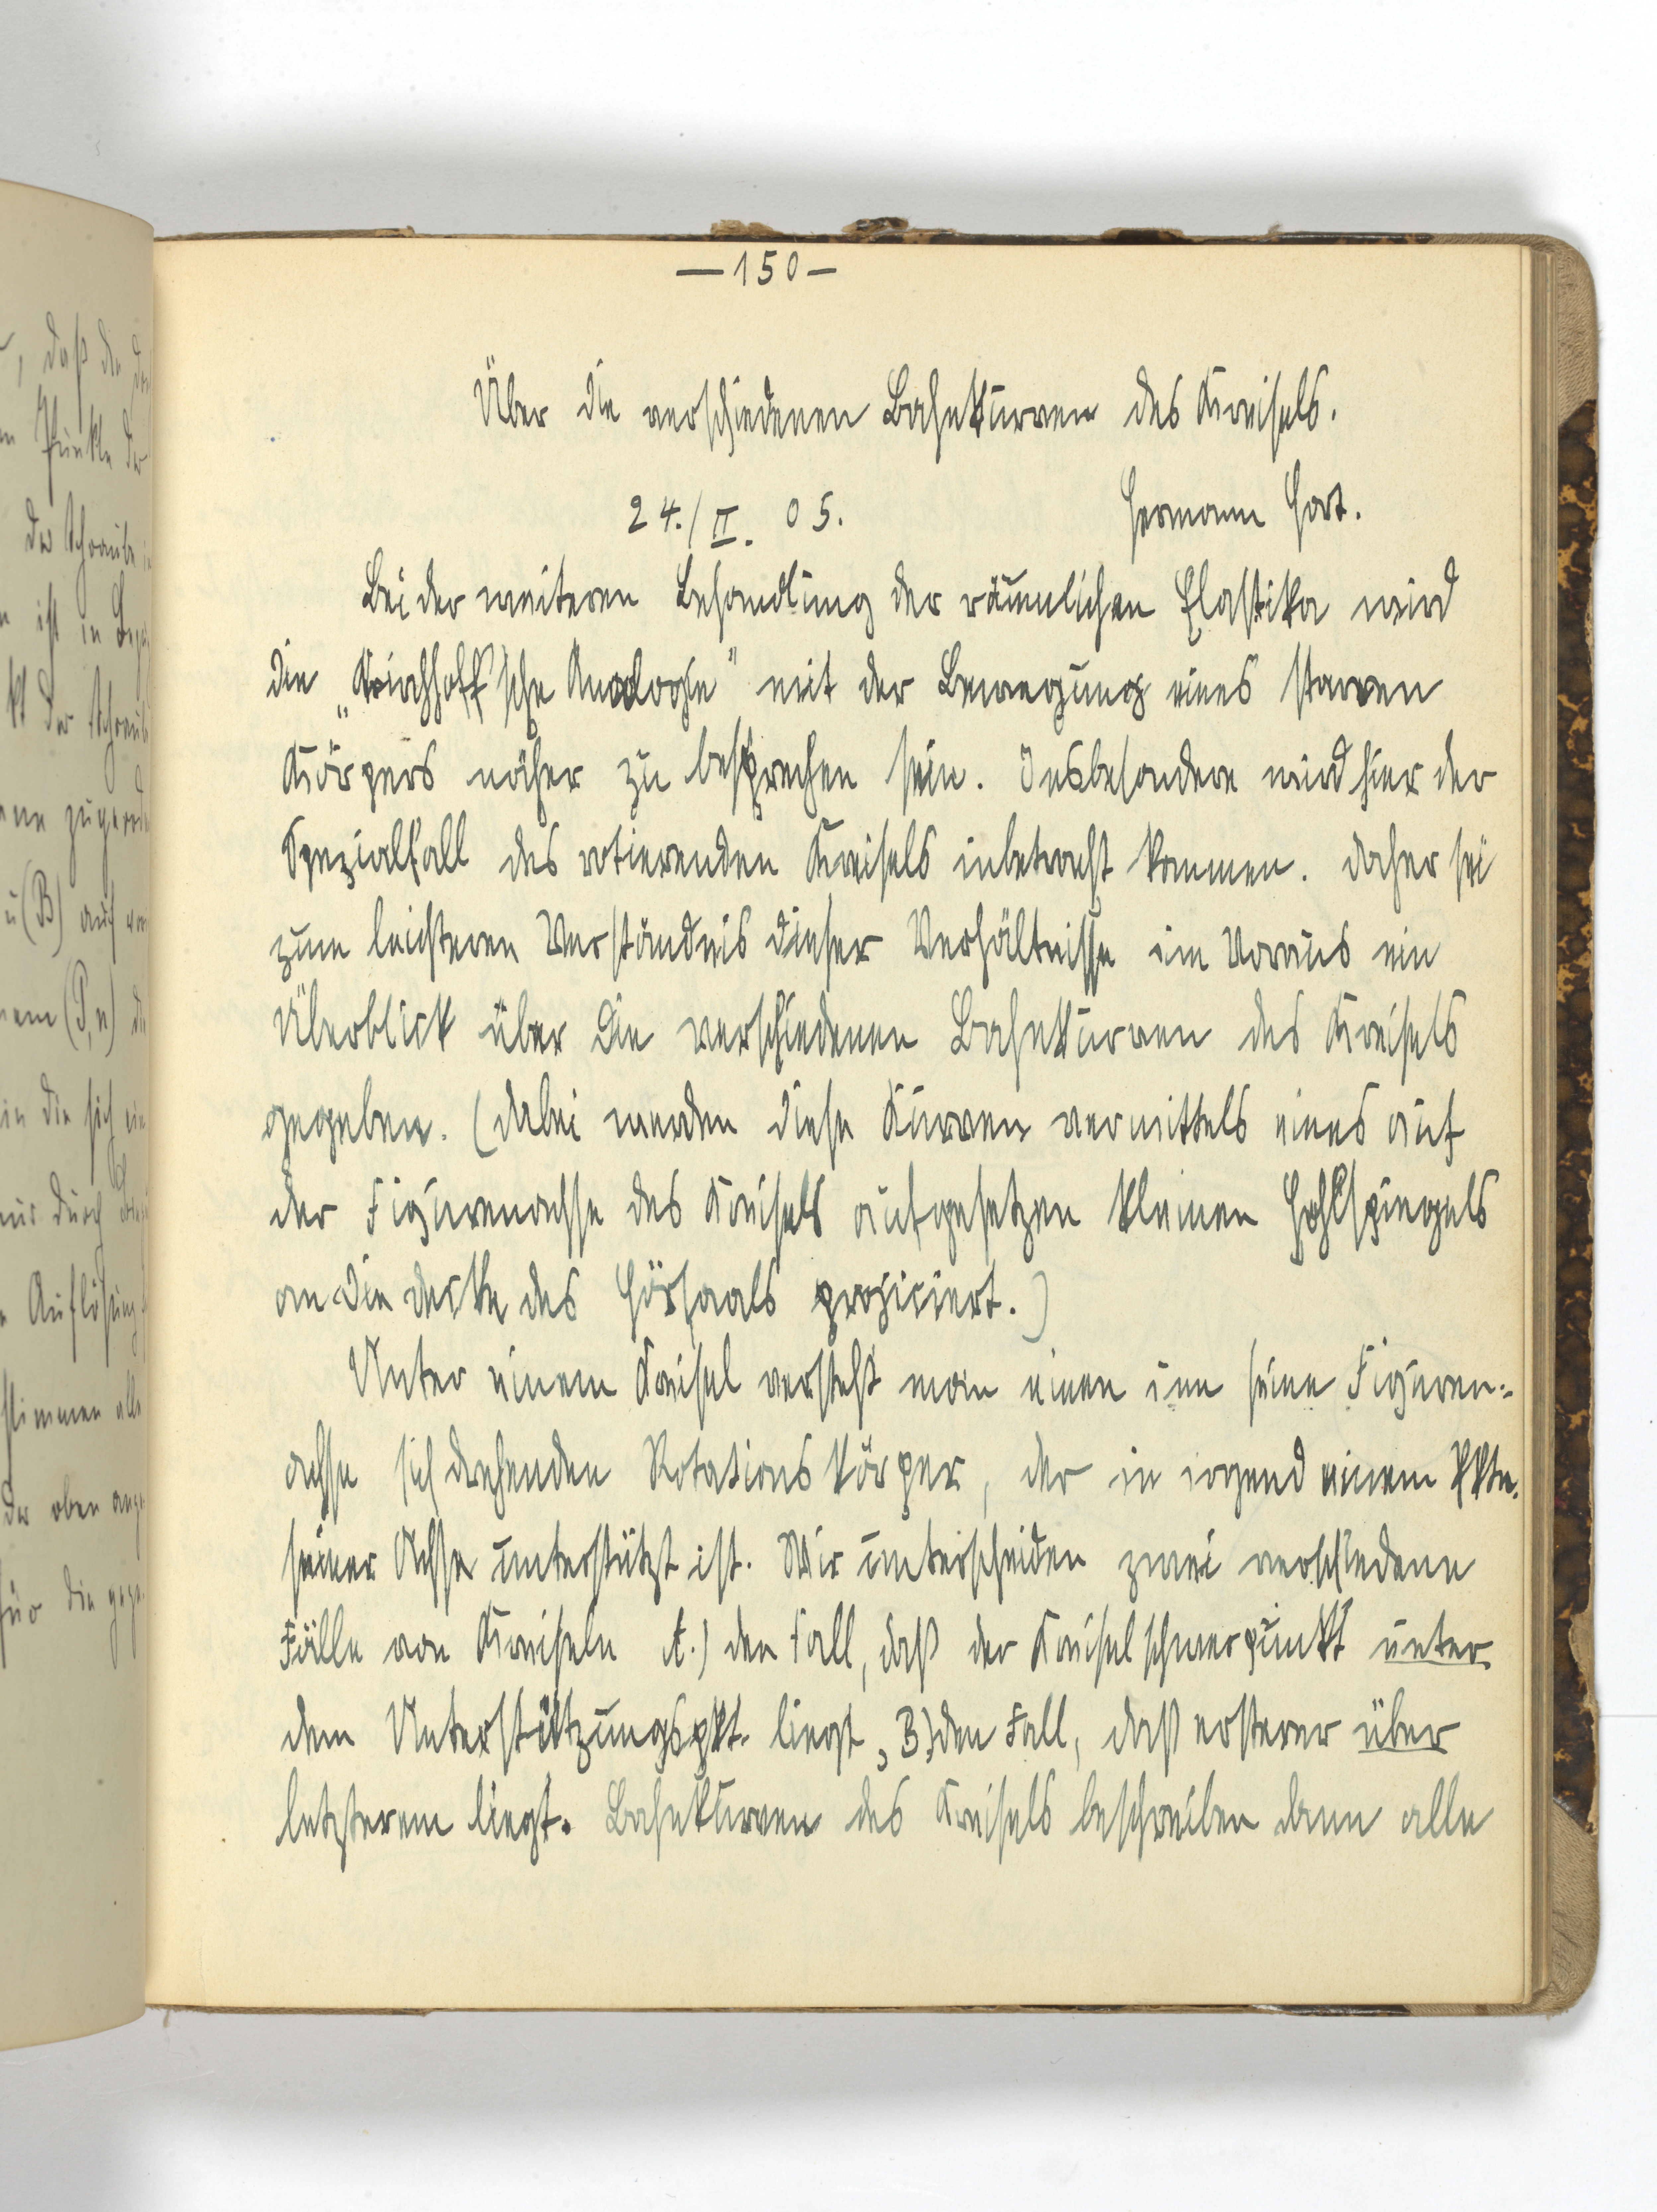 —150—
Über die verschiedenen Bahnkurven des Kreisels.
24./II. 05. Hermann Hort.
Bei der weiteren Behandlung der räumlichen Elastika wird
die „Kirchhoff'sche Analogie" mit der Bewegung eines starren
Körpers näher zu besprechen sein. Insbesondere wird hier der
Spezialfall des rotierenden Kreisels inbetracht kommen. Daher sei
zum leichteren Verständnis dieser Verhältnisse im Voraus ein
Überblick über die verschiedenen Bahnkurven des Kreisels
gegeben. (Dabei werden diese Kurven vermittels eines auf
der Figurenachse des Kreisels aufgesetzen kleinen Hohlspiegels
an die Decke des Hörsaals projiciert.)
Unter einem Kreisel versteht man einen um seine Figuren-
achse sich drehenden Rotationskörper, der in irgend einem Pkte.
seiner Achse unterstützt ist. Wir unterscheiden zwei verschiedene
Fälle von Kreiseln A.) den Fall, daß der Kreiselschwerpunkt unter
dem Unterstützungspkt. liegt, B) den Fall, daß ersterer über
letzterem liegt. Bahnkurven des Kreisels beschreiben dann alle